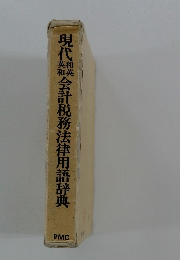 現代和英英和会計税務法律用語辞典
PMC